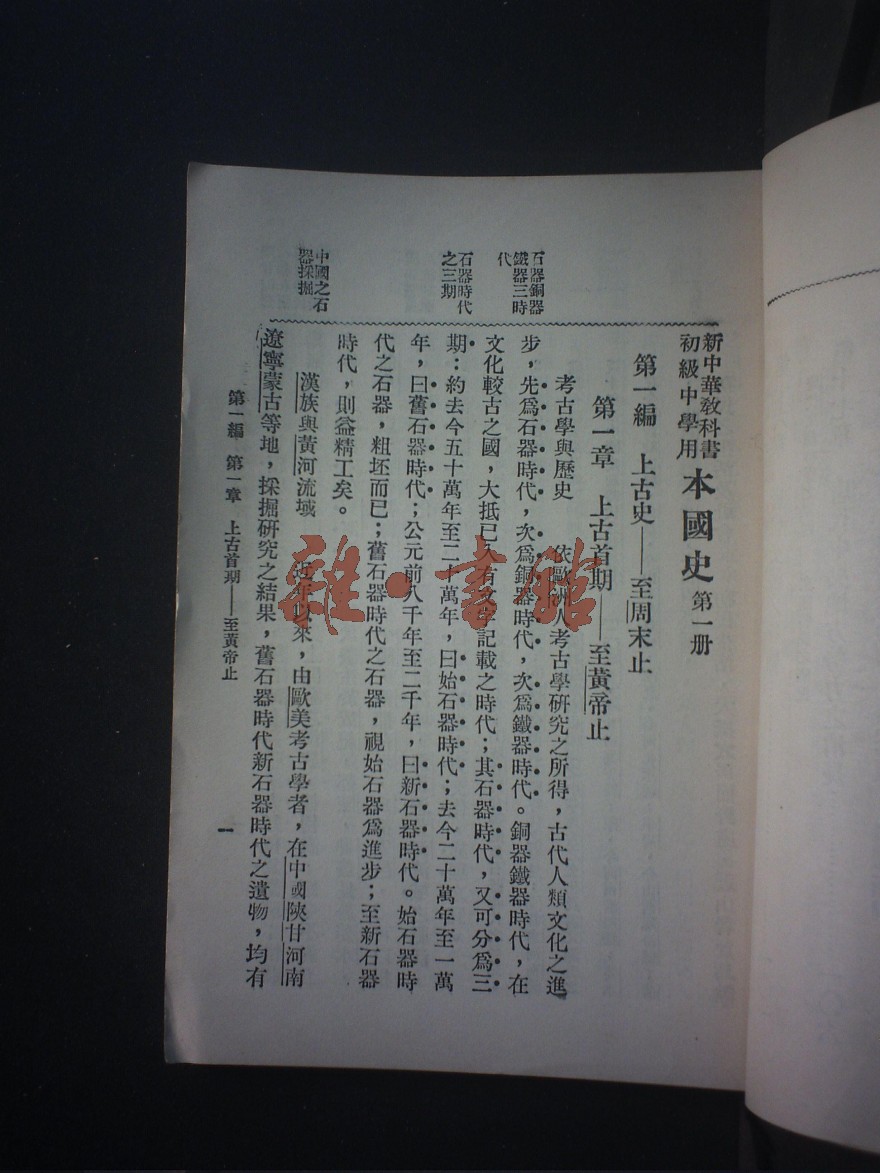 新中華教科書
初級中學用
本國史 第一册
第一編 上古史——至周末止
第一章 上古首期——至黃帝止
考古學與歷史 依歐洲人考古學研究之所得，古代人類文化之進
步，先爲石器時代，次爲銅器時代，次爲鐵器時代。銅器鐵器時代，在
文化較古之國，大抵已入有文字記載之時代；其石器時代，又可分爲三
期：約去今五十萬年至二十萬年，曰始石器時代；去今二十萬年至一萬
年，曰舊石器時代；公元前八千年至二千年，曰新石器時代。始石器時
代之石器，粗坯而已；舊石器時代之石器，視始石器爲進步；至新石器
時代，則益精工矣。
漢族與黃河流域 近年以來，由歐美考古學者，在中國陝甘河南
遼寧蒙古等地，採掘研究之結果，舊石器時代新石器時代之遺物，均有
石器銅器
鐵器三時
代
石器時代
之三期
中國之石
器採掘
第一編 第一章 上古首期——至黃帝止
一
雜·書館